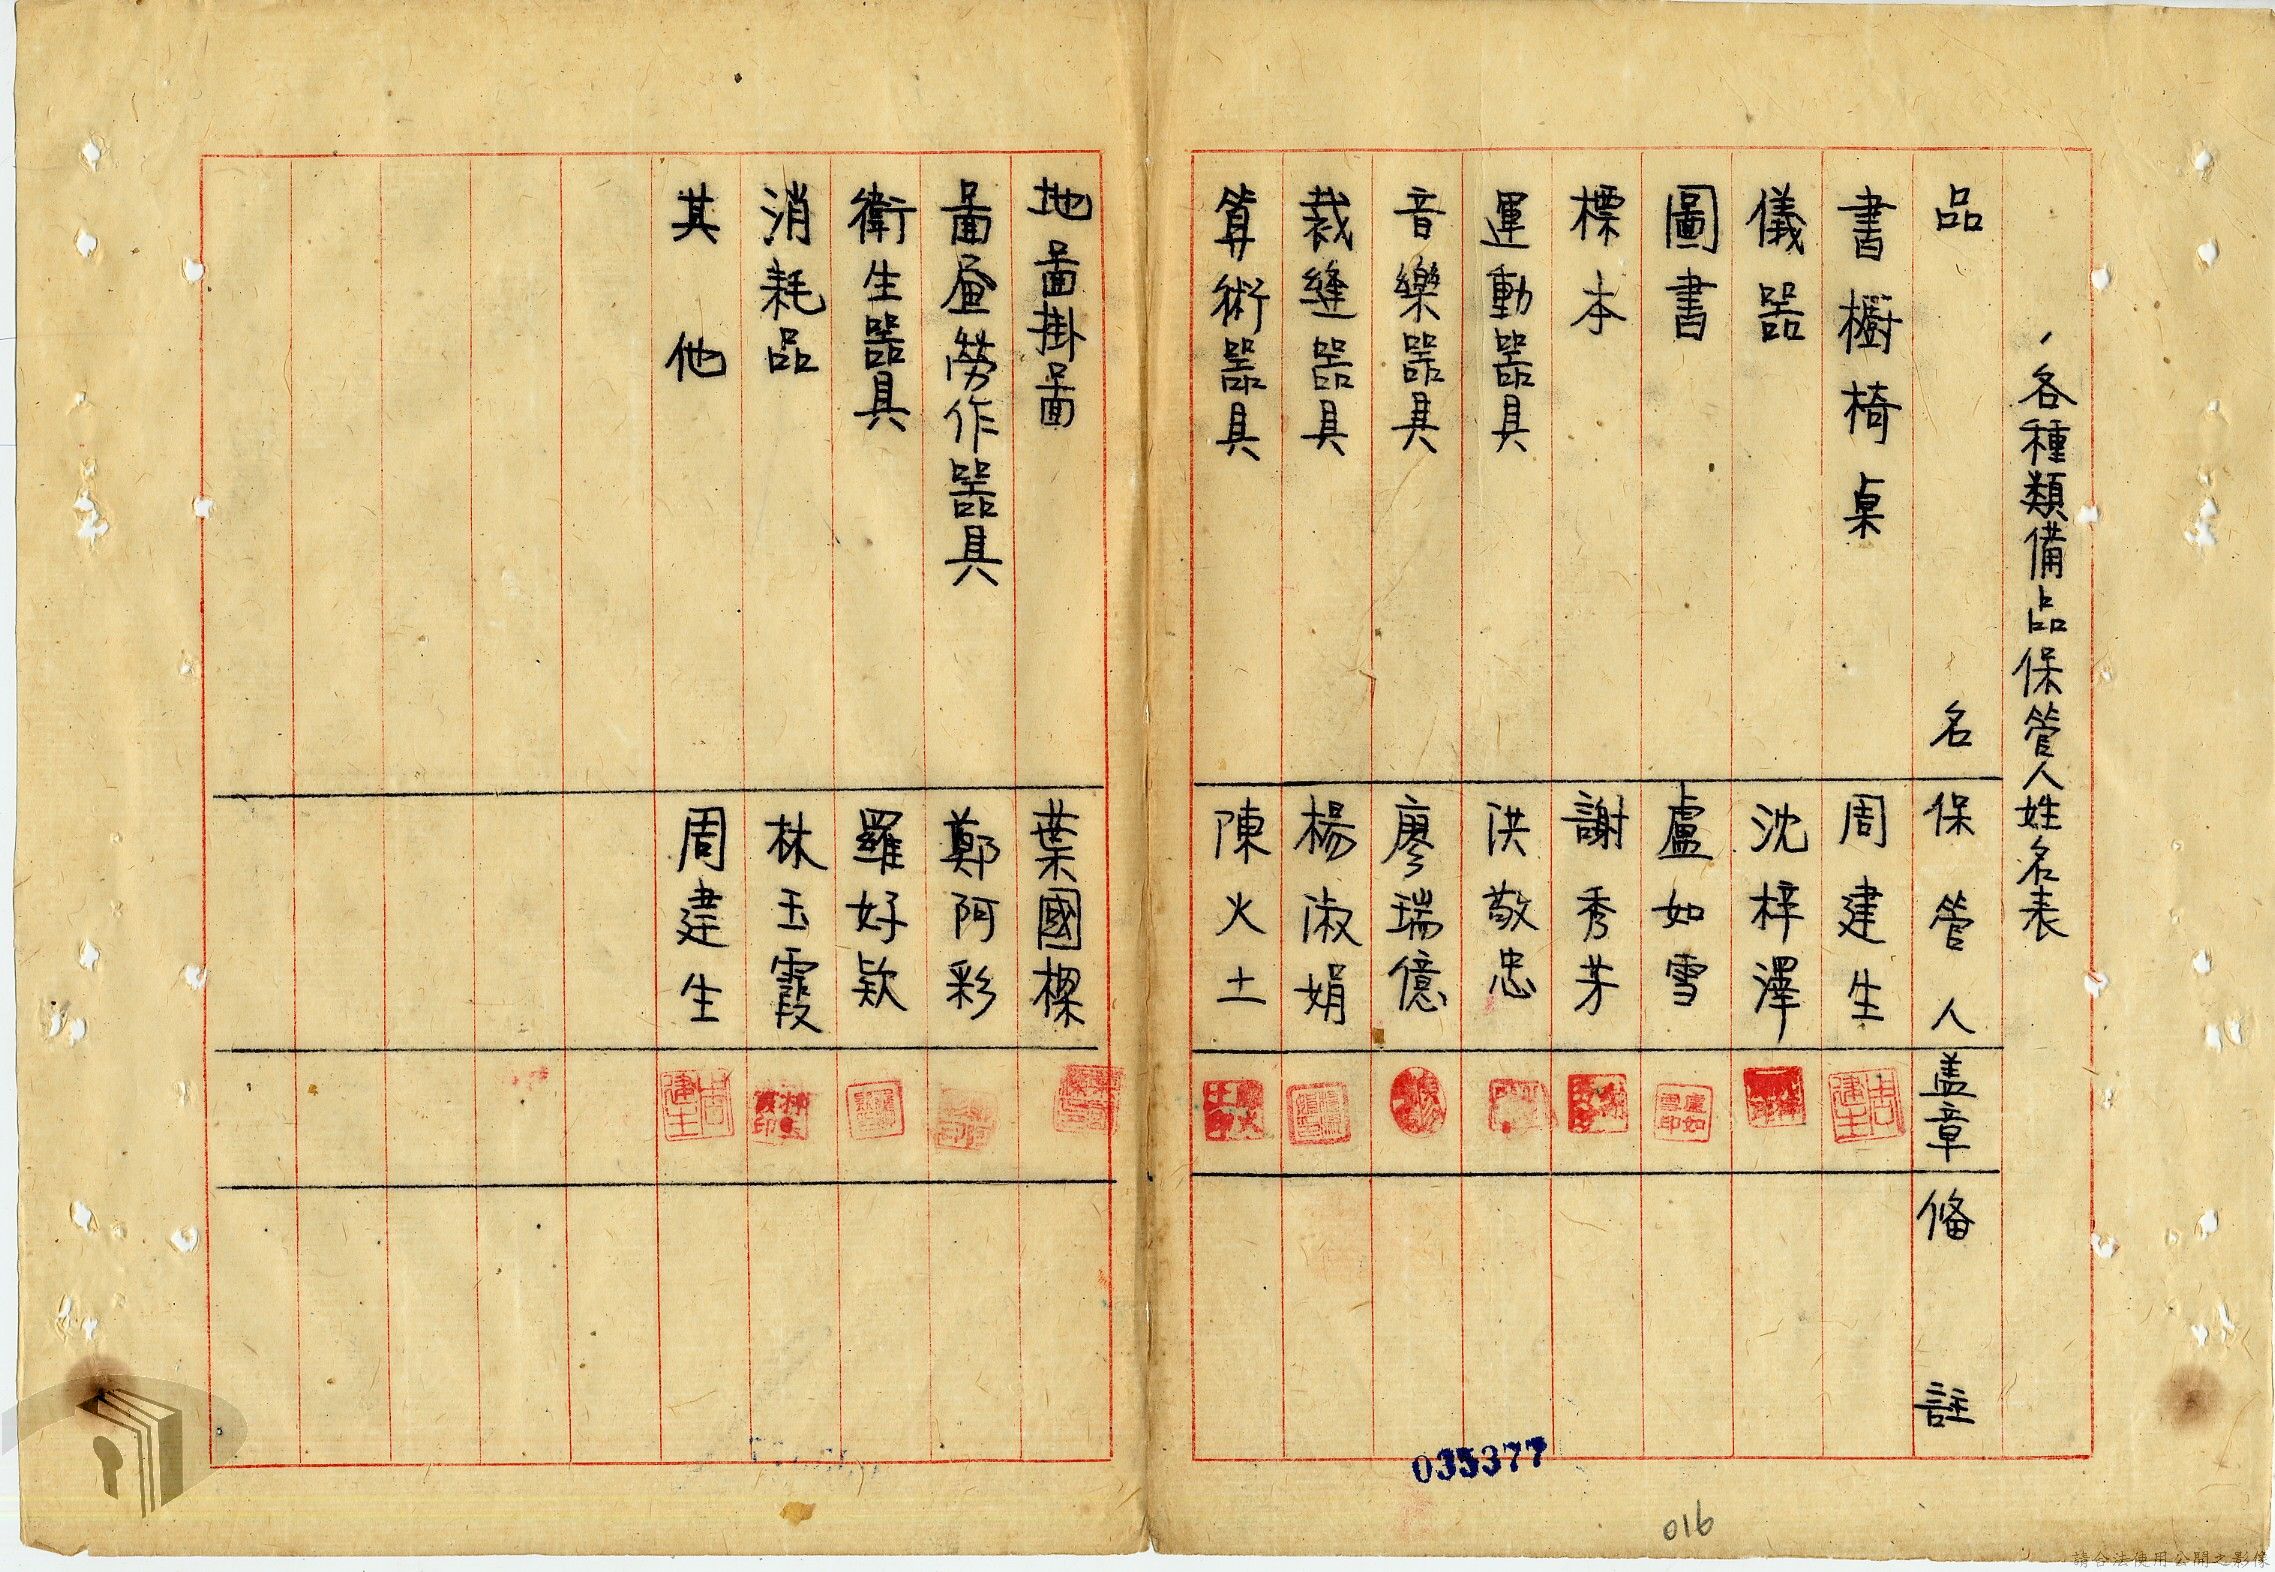 、各種類備品保管人姓名表
品名 保管人 盖章 俻註
書櫥椅桌 周建生
儀器 沈梓澤
圖書 盧如雪
標本 謝秀芽
運動器具 洪敬忠
音樂器具 廖瑞億
裁縫器具 楊淑娟
算術器具 陳火土
地啚掛啚 葉國樑
啚画勞作器具 鄭阿彩
衛生器具 羅好欵
消耗品 林玉霞
其他 周建生
035377
016
請合法使用公開之影像